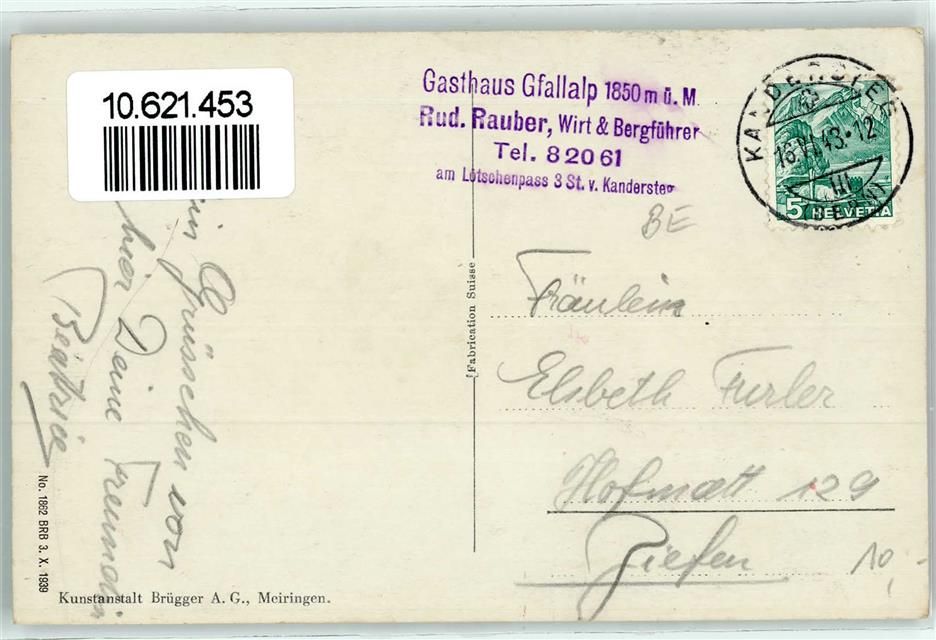 10.621.453
Gasthaus Gfallalp 1850 m ü. M.
Rud. Rauber, Wirt & Bergführer
Tel. 82061
am Lötschenpass 3 St. v. Kandersteg
KANDERSTEG
16.VI.43.12
III
(BERN)
5 HELVETIA
BE
Grüsschen von
hier Deine Freundin
Beatrice
Fabrication Suisse
Fräulein
Elsbeth Furler
Hofmatt 129
Ziefen
10,-
No. 1862 BRB 3. X. 1939
Kunstanstalt Brügger A. G., Meiringen.